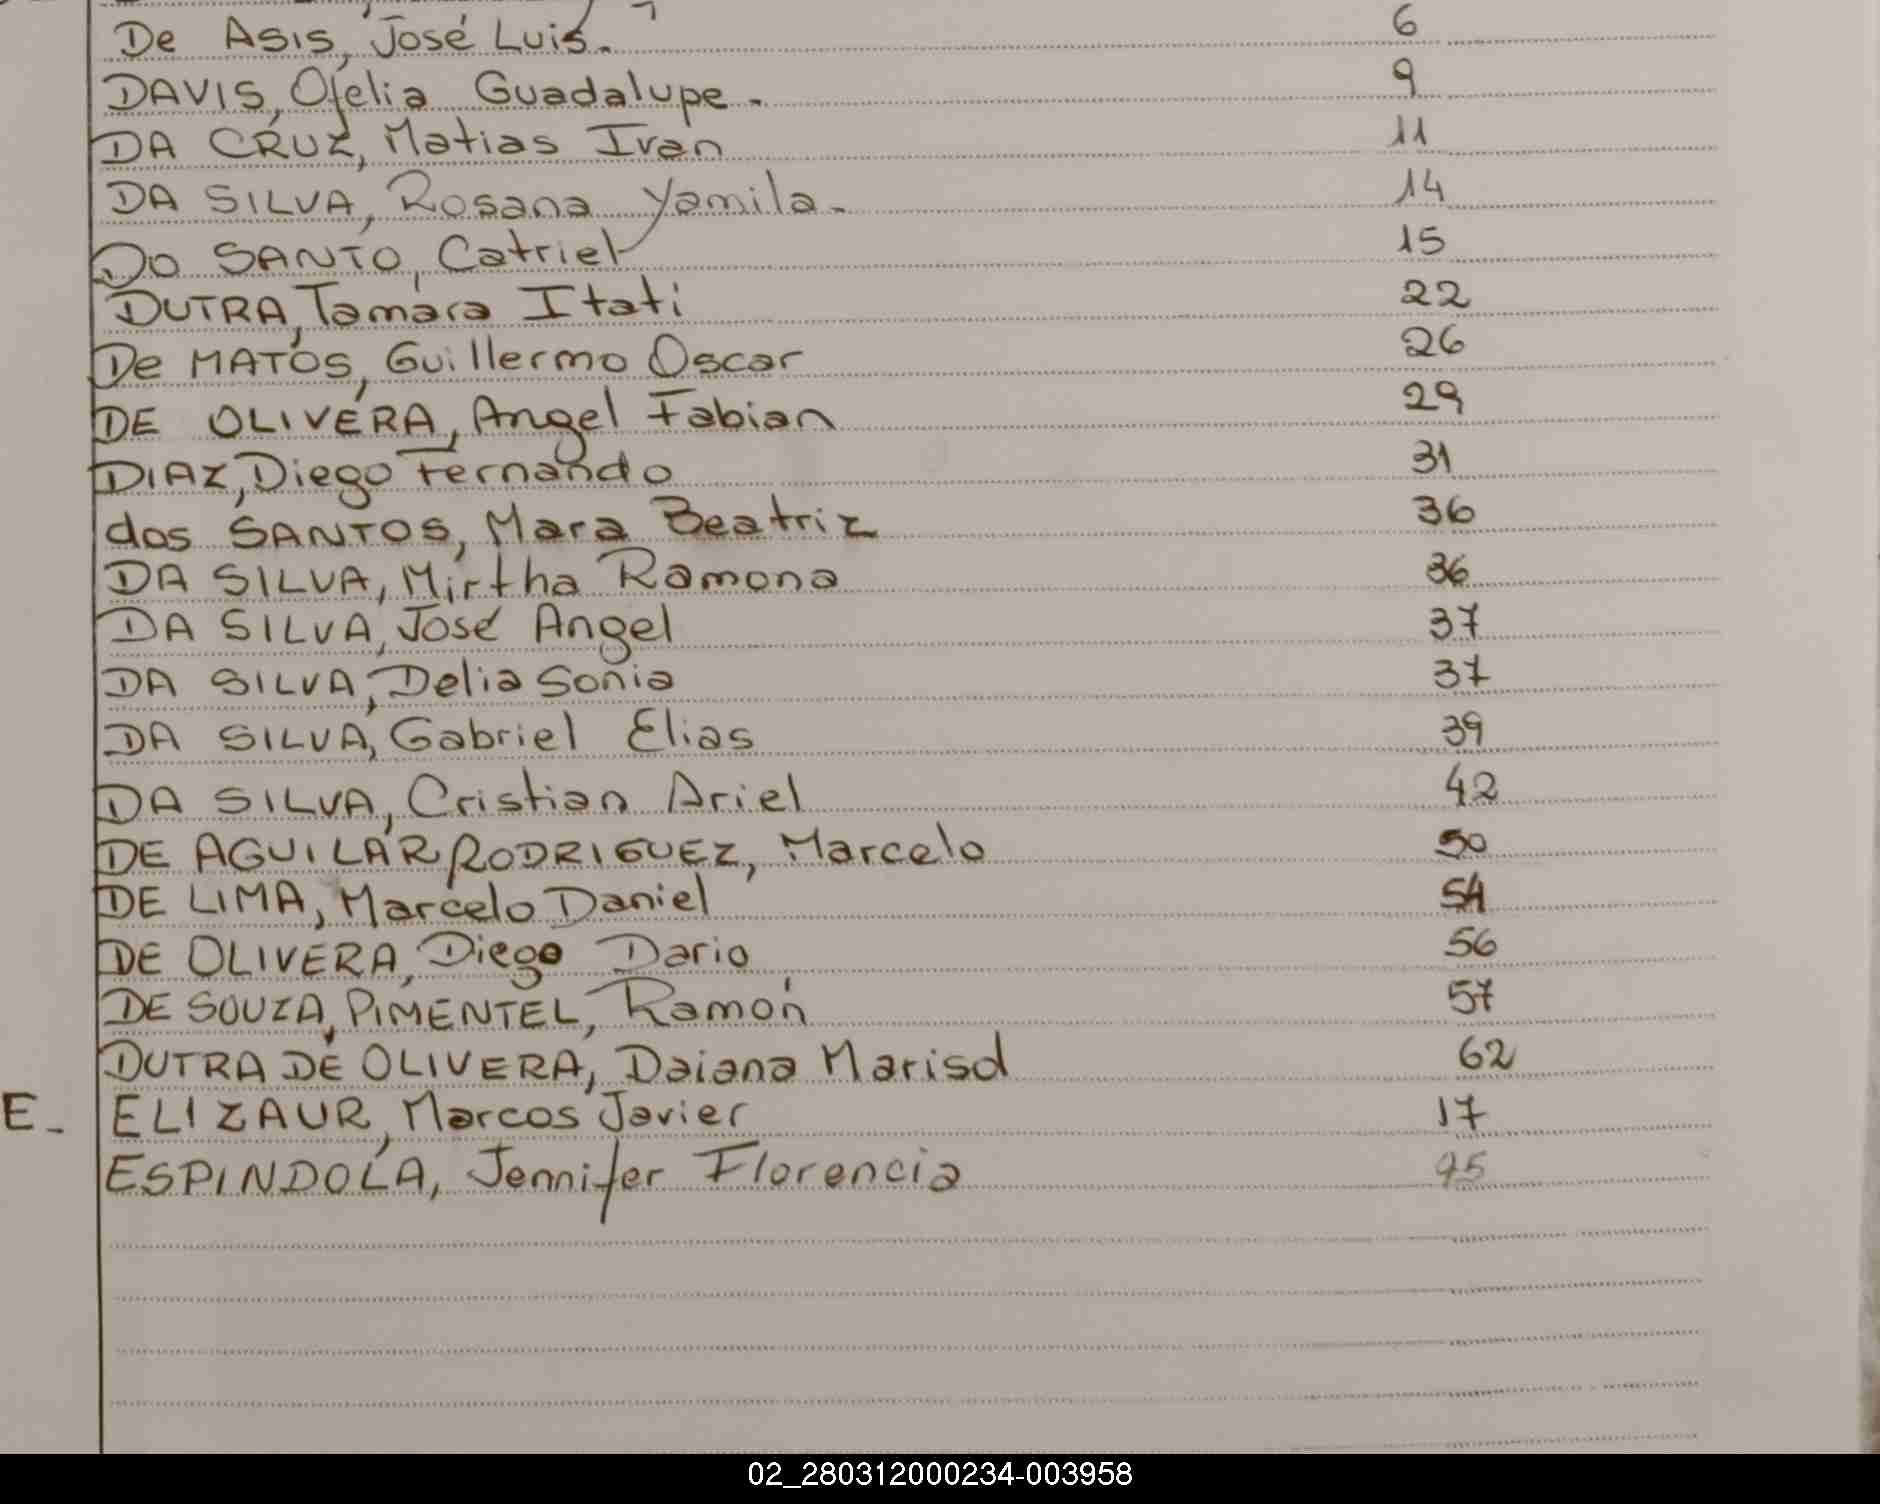 De ASIS, José Luis. 6
DAVIS, Ofelia Guadalupe. 9
DA CRUZ, Matias Ivan 11
DA SILVA, Rosana Yamila. 14
Do SANTO, Catriel 15
DUTRA, Tamara Itati 22
De MATOS, Guillermo Oscar 26
DE OLIVERA, Angel Fabian 29
DIAZ, Diego Fernando 31
dos SANTOS, Mara Beatriz 36
DA SILVA, Mirtha Ramona 36
DA SILVA, José Angel 37
DA SILVA, Delia Sonia 37
DA SILVA, Gabriel Elias 39
DA SILVA, Cristian Ariel 42
DE AGUILAR RODRIGUEZ, Marcelo 50
DE LIMA, Marcelo Daniel 54
DE OLIVERA, Diego Dario 56
DE SOUZA PIMENTEL, Ramón 57
DUTRA DE OLIVERA, Daiana Marisol 62
E. ELIZAUR, Marcos Javier 17
ESPINDOLA, Jennifer Florencia
02_280312000234-003958